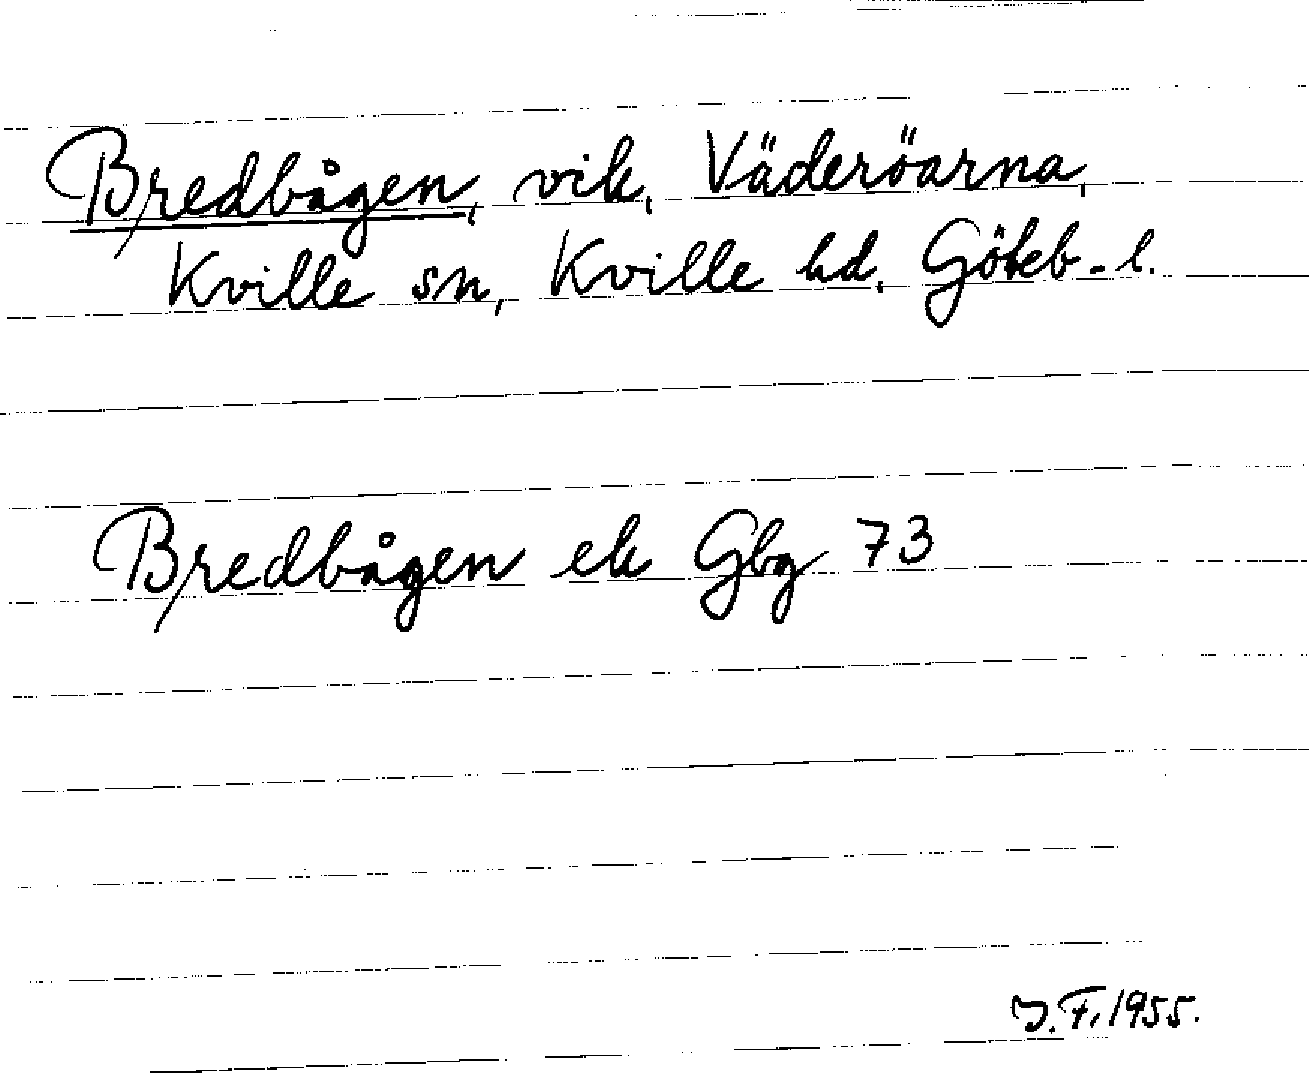 Bredbågen, vik, Väderöarna,
Kville sn, Kville hd, Göteb-l.
Bredbågen ek Gbg 73
J.F. 1955.